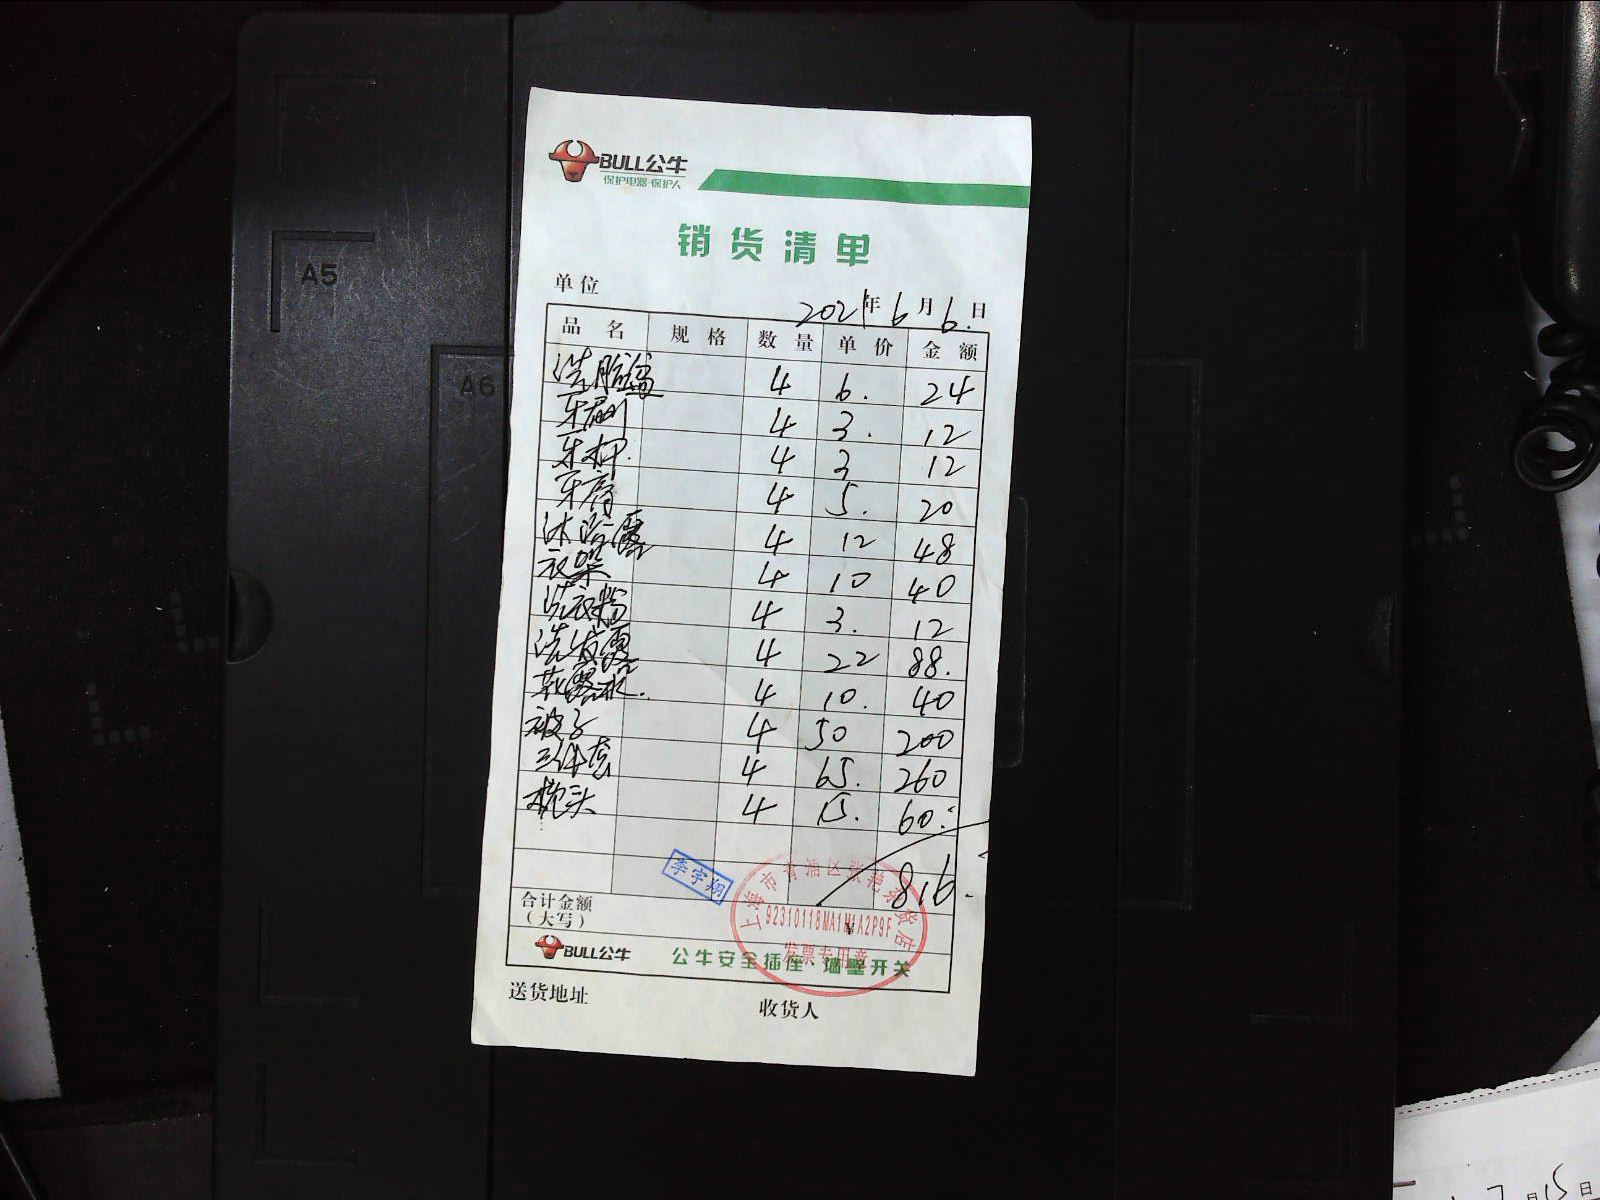 BULL公牛
保护电器·保护人
销货清单
单位
2021年6月6日
品名 规格 数量 单价 金额
洗脸盆 4 6. 24
牙刷 4 3. 12
牙杯 4 3 12
牙膏 4 5. 20
沐浴露 4 12 48
衣架 4 10 40
洗衣粉 4 3. 12
洗发露 4 22 88.
花露水. 4 10. 40
被子 4 50 200
三件套 4 65. 260
枕头 4 15. 60.
816.
李宇翔
上海市青浦区张艳杂货店
92310118MA1M1A2P9F
发票专用章
合计金额
（大写）
BULL公牛 公牛安全插座·墙壁开关
送货地址 收货人
A5
A6
7月15日